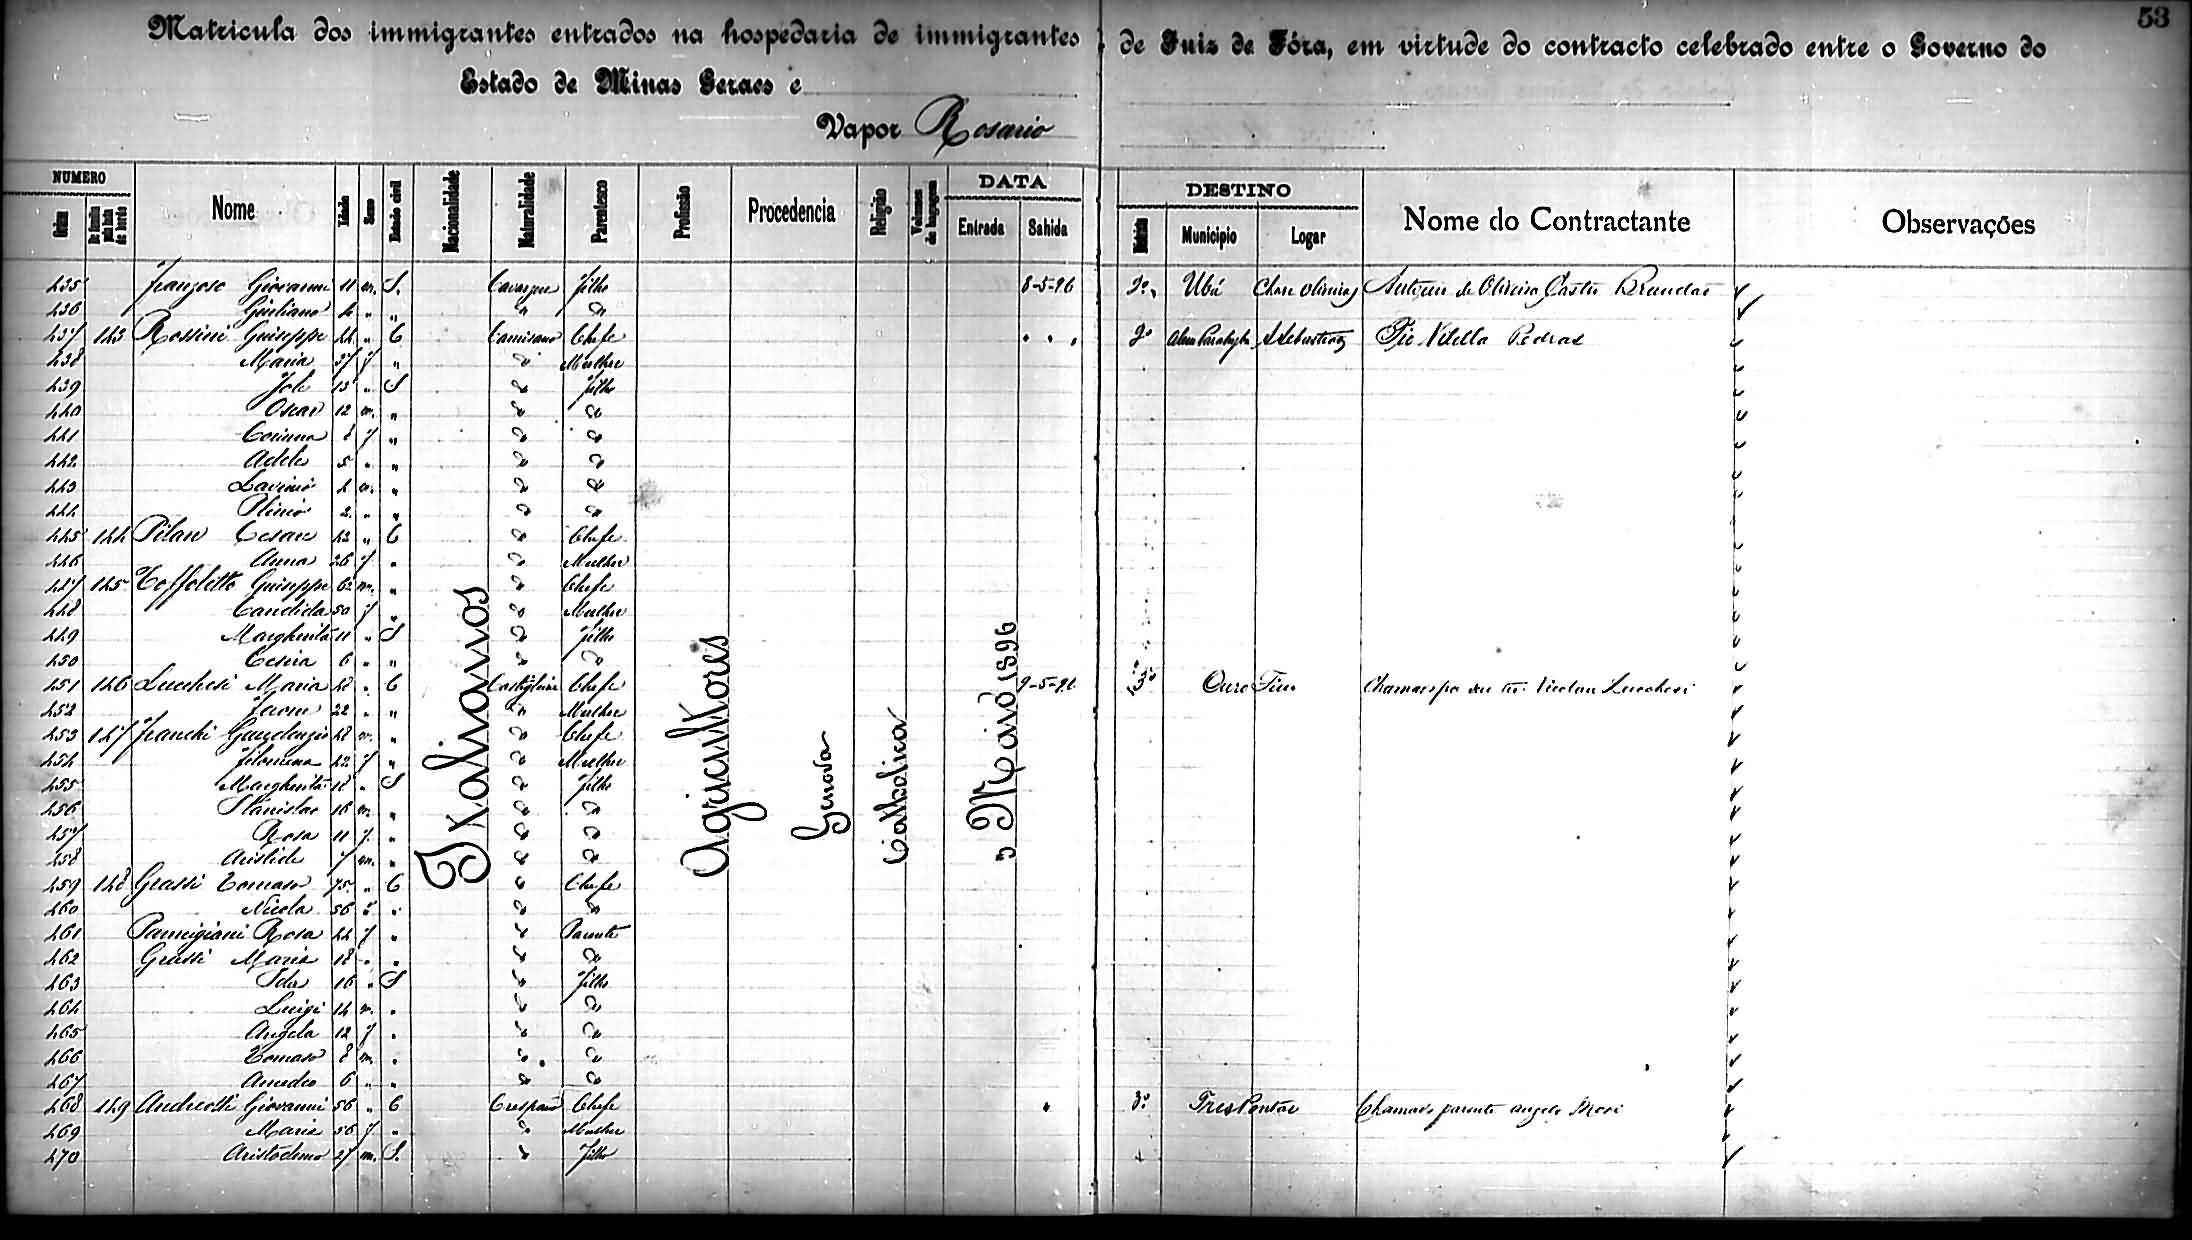 53
Matricula dos immigrantes entrados na hospedaria de immigrantes de Juiz de Fóra, em virtude do contracto celebrado entre o Governo do
Estado de Minas Geraes e
Vapor Rosario
NUMERO Nome Idade Sexo Estado civil Nacionalidade Naturalidade Parentesco Profissão Procedencia Religião Volumes de bagagem DATA Entrada Sahida DESTINO Municipio Logar Nome do Contractante Observações
Italianos Agricultores Genova Catholica 5 Maio 1896
435 Giovanni 11 m. S. Filho 8-5-96 2º Ubá de Oliveira Castro
436 Giuliano 4 " "
437 143 Rossini Guiseppe 44 " C Camisano Chefe " " " 2º Pedras
438 Maria 37 f " " Mulher
439 13 " S " Filho
440 Oscar 12 m. " " "
441 Corinna 8 f " " "
442 Adele 5 " " " "
443 4 m. " " "
444 Plinio 2 " " " "
445 144 Pilan Cesare 42 " C " Chefe
446 Anna 26 f " " Mulher
447 145 Toffoletto Guiseppe 62 m. " " Chefe
448 Candida 50 f " " Mulher
449 Margherita 11 " S " Filho
450 6 " " " "
451 146 Lucchesi Maria 48 " C Chefe 9-5-96 3º Ouro Fino Lucchesi
452 22 " " " Mulher
453 147 Franchi Gaudenzio 48 m. " " Chefe
454 Filomena 42 f " " Mulher
455 Margherita 18 " S " Filho
456 Stanislao 16 m. " " "
457 Rosa 11 f. " " "
458 Aristide 7 m. " " "
459 148 Grassi Tomaso 75 " C " Chefe
460 Nicola 56 " " " "
461 Parmigiani Rosa 44 f " " Parente
462 Grassi Maria 18 " " " "
463 Ida 16 " S " Filho
464 Luigi 14 m. " " "
465 Angela 12 f " " "
466 Tomaso 8 m. " " "
467 Amedeo 6 " " " "
468 149 Andreotti Giovanni 56 " C Chefe " 3º Tres Pontas Chamado parente Angelo
469 Maria 56 f " " Mulher
470 Aristodemo 27 m. S. " Filho